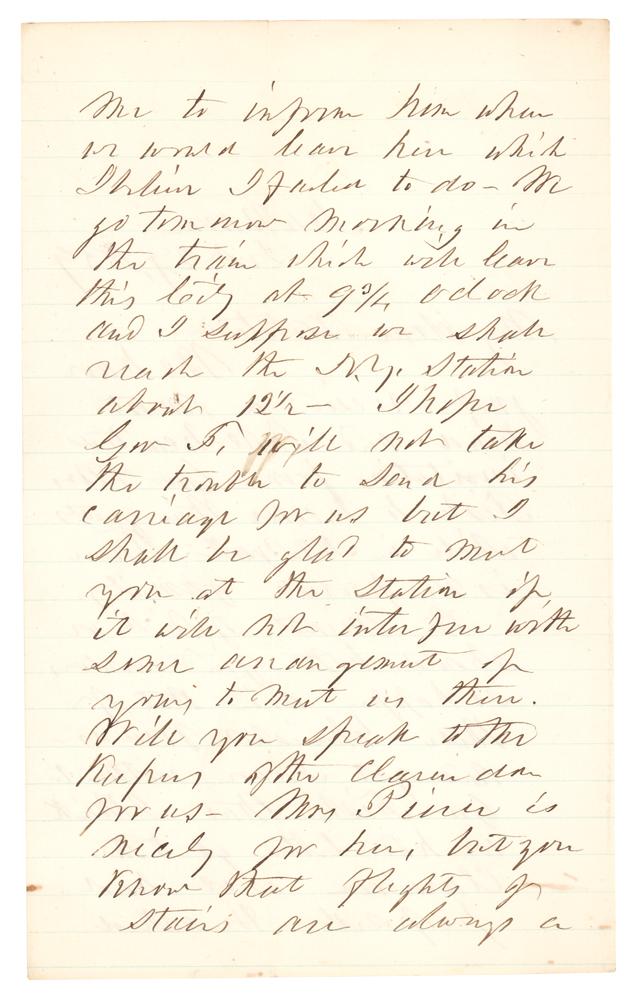 me to inform him when
we would leave here which
I believe I failed to do - We
go tomorrow morning in
the train which will leave
this City at 9 3/4 o'clock
and I suppose we shall
reach the N.Y. Station
about 12 1/2 - I hope
Gov F. will not take
the trouble to send his
carriage for us but I
shall be glad to meet
you at the Station if
it will not interfere with
some arrangement of
yours to meet us there.
Will you speak to the
Keepers of the Clarendon
for us - Mrs Pierce is
nicely for her, but you
know that flights of
stairs are always a